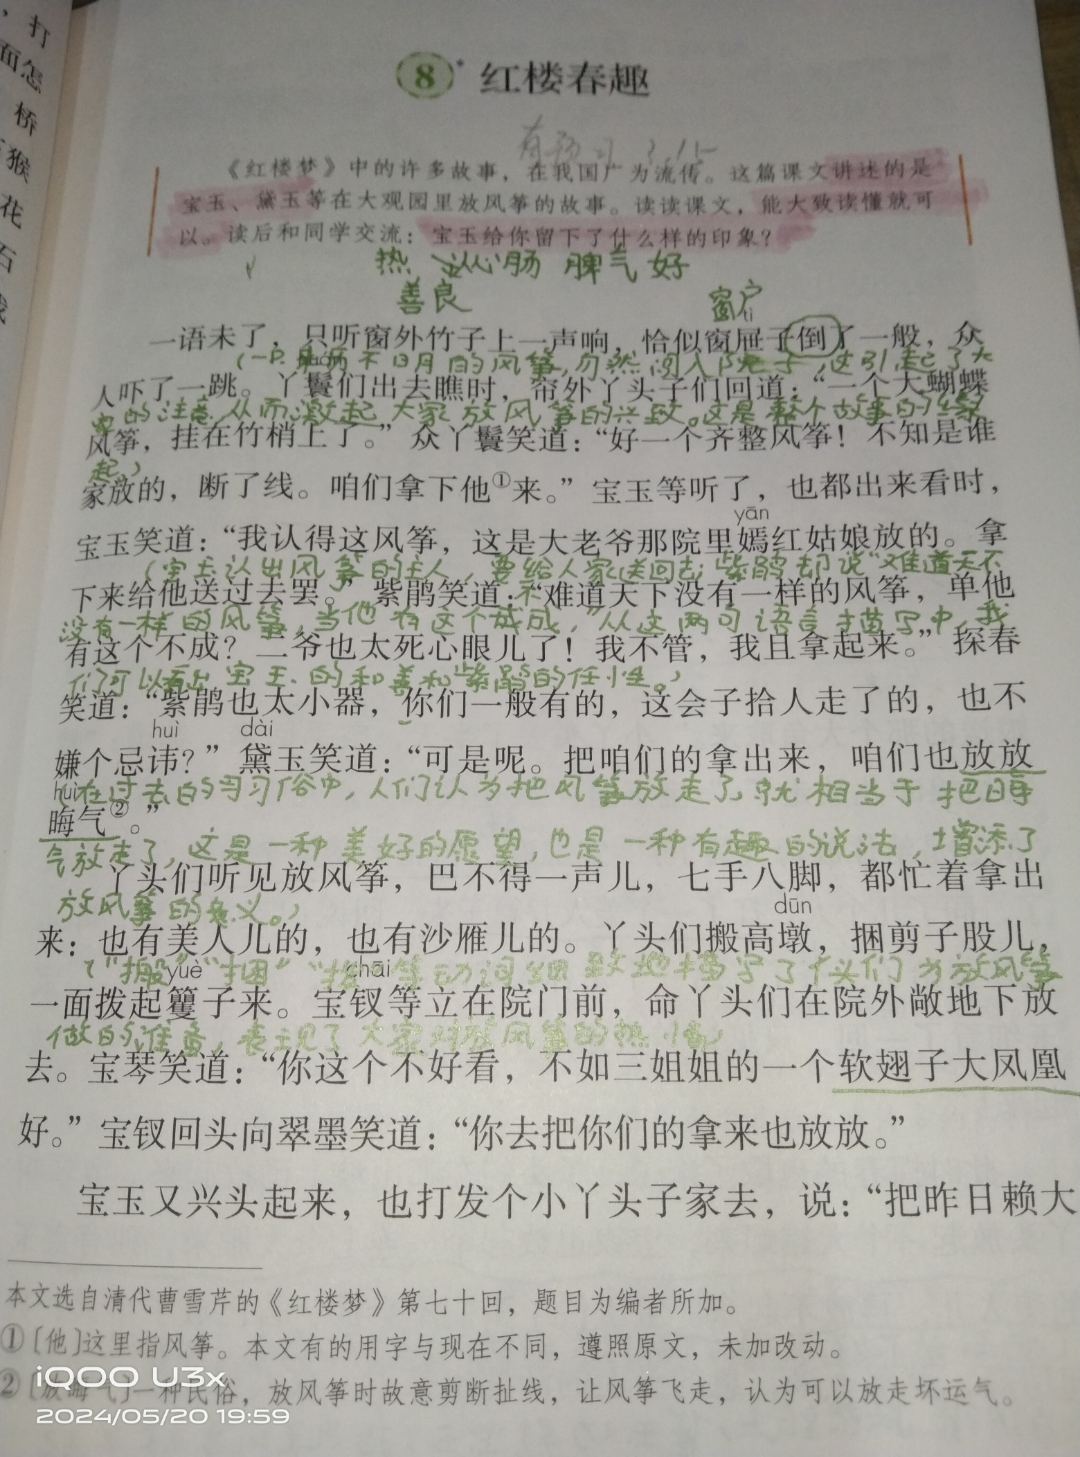 ，打
面怎
桥
猴
花
石
8* 红楼春趣
《红楼梦》中的许多故事，在我国广为流传。这篇课文讲述的是
宝玉、黛玉等在大观园里放风筝的故事。读读课文，能大致读懂就可
以。读后和同学交流：宝玉给你留下了什么样的印象？
热心肠 脾气好
善良
窗户
tì
一语未了，只听窗外竹子上一声响，恰似窗屉子倒了一般，众
(一只 的风筝，忽然闯入院子，这引起了大
人吓了一跳。丫鬟们出去瞧时，帘外丫头子们回道：“一个大蝴蝶
的注意 从而激起大家放风筝的兴致。这是整个故事的
风筝，挂在竹梢上了。”众丫鬟笑道：“好一个齐整风筝！不知是谁
起）
家放的，断了线。咱们拿下他①来。”宝玉等听了，也都出来看时，
yān
宝玉笑道：“我认得这风筝，这是大老爷那院里嫣红姑娘放的。拿
(宝玉认出风筝的主人，要给人家送回去；紫鹃却说“难道天下
下来给他送过去罢。”紫鹃笑道：“难道天下没有一样的风筝，单他
没有一样的风筝，当他有这个不成，”从这两句语言描写中，我
有这个不成？二爷也太死心眼儿了！我不管，我且拿起来。”探春
们可以看出宝玉的和善和紫鹃的任性。）
笑道：“紫鹃也太小器，你们一般有的，这会子拾人走了的，也不
huì dài
嫌个忌讳？”黛玉笑道：“可是呢。把咱们的拿出来，咱们也放放
huì 在过去的习俗中，人们认为把风筝放走了，就相当于把晦
晦气②。”
气放走了，这是一种美好的愿望，也是一种有趣的说法，增添了
丫头们听见放风筝，巴不得一声儿，七手八脚，都忙着拿出
放风筝的意义。）
dūn
来：也有美人儿的，也有沙雁儿的。丫头们搬高墩，捆剪子股儿，
(“搬”“捆”“拨”等动词细致地描写了丫头们为放风筝
yuè chāi
一面拨起籰子来。宝钗等立在院门前，命丫头们在院外敞地下放
做的准备，表现了大家对放风筝的热情）
去。宝琴笑道：“你这个不好看，不如三姐姐的一个软翅子大凤凰
好。”宝钗回头向翠墨笑道：“你去把你们的拿来也放放。”
宝玉又兴头起来，也打发个小丫头子家去，说：“把昨日赖大
本文选自清代曹雪芹的《红楼梦》第七十回，题目为编者所加。
①〔他〕这里指风筝。本文有的用字与现在不同，遵照原文，未加改动。
②〔放晦气〕一种民俗，放风筝时故意剪断扯线，让风筝飞走，认为可以放走坏运气。
iQOO U3x
2024/05/20 19:59